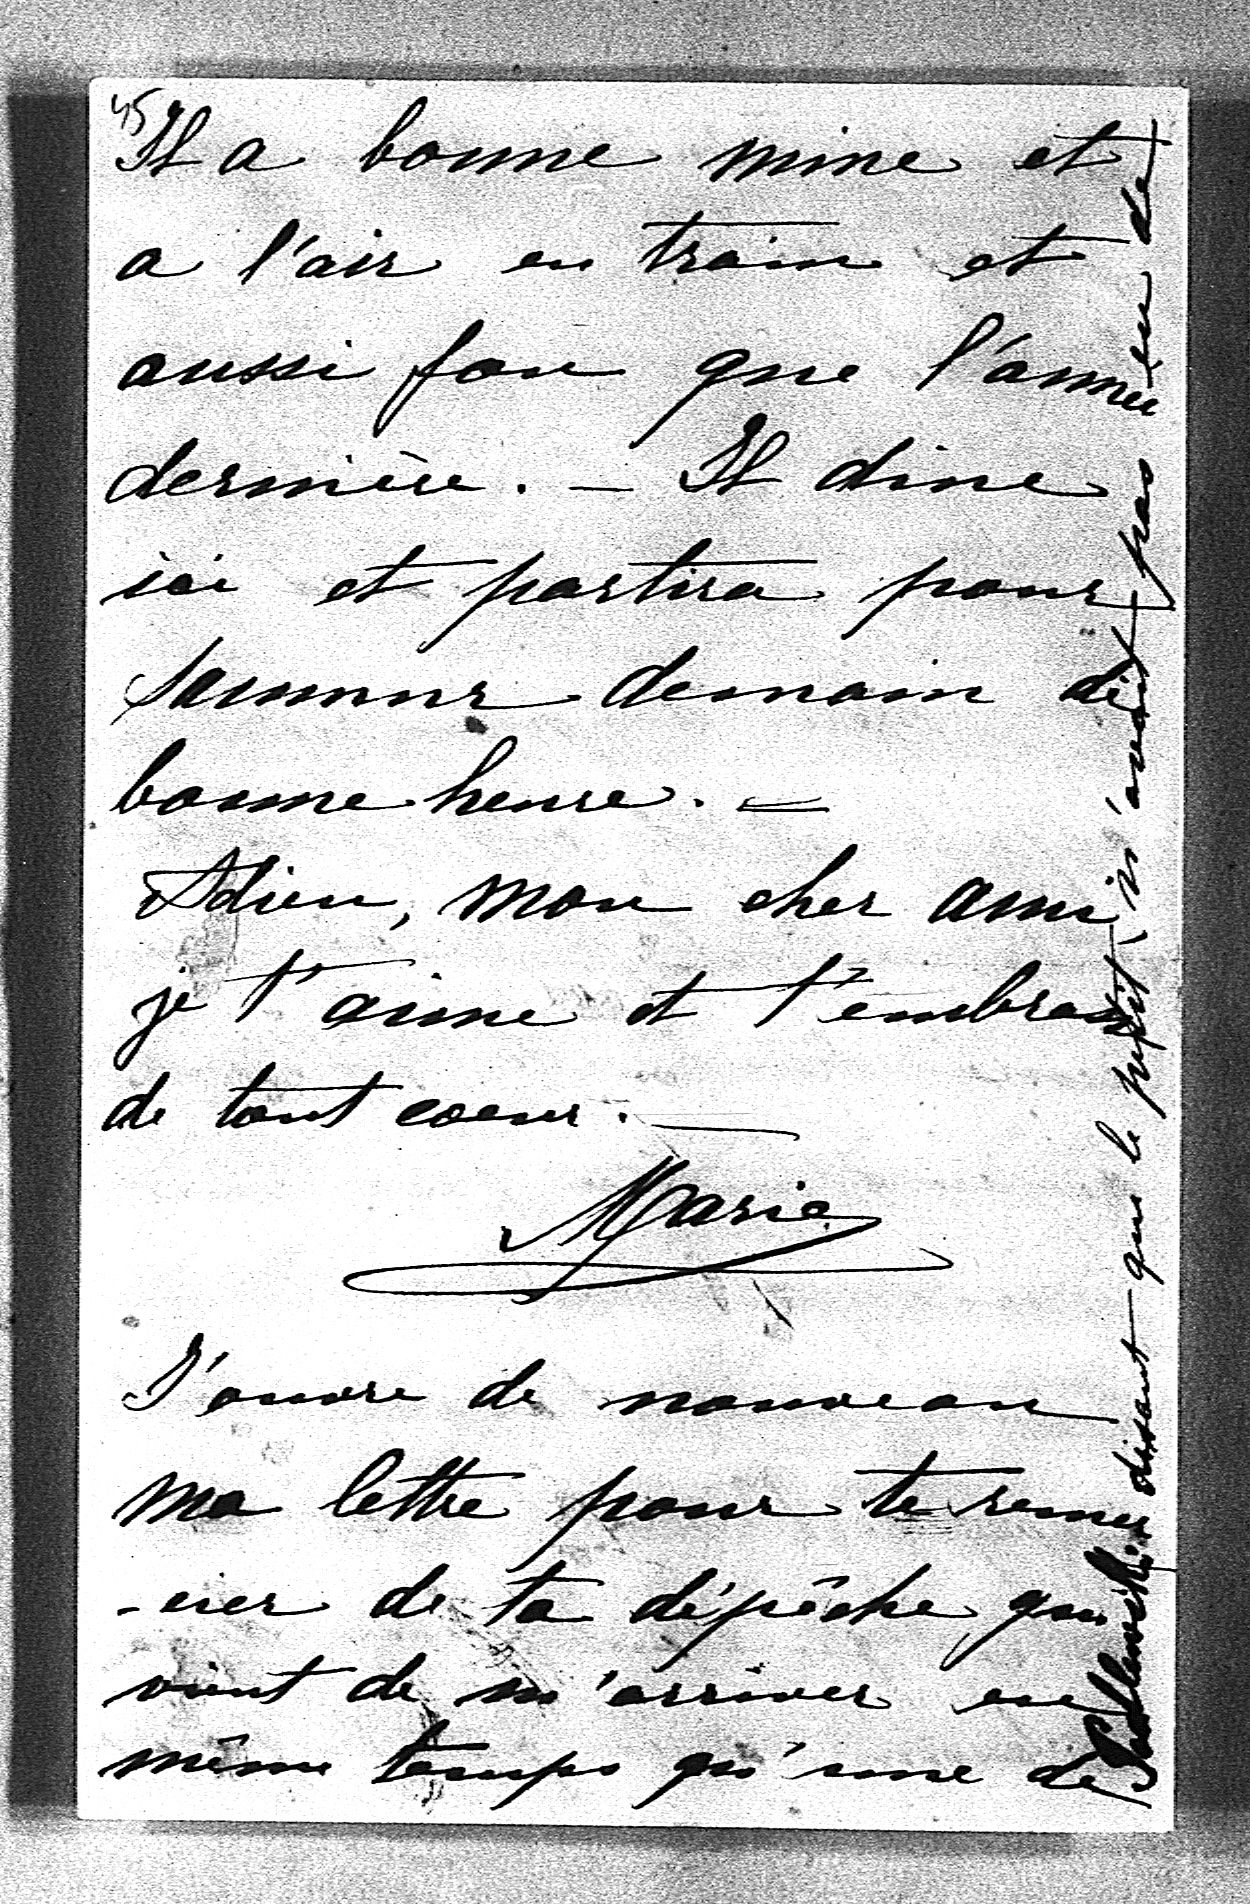 45
Il a bonne mine et
a l'air en train et
aussi fou que l'année
dernière. — Il dine
ici et partira pour
Saumur demain de
bonne heure. —
Adieu, mon cher ami
je t'aime et t'embrasse
de tout coeur. —
Marie
J'ouvre de nouveau
ma lettre pour te remer
-cier de ta dépêche qui
vient de m'arriver en
même temps qu'une de
disant que le petit n'avait pas eu de